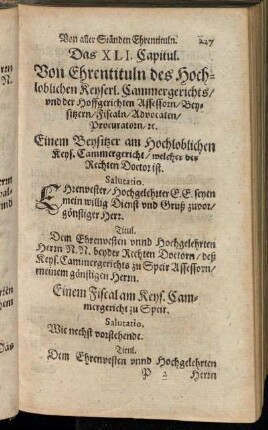 Von aller Ständen Ehrentituln. 227
Das XLI. Capitul.
Von Ehrentituln des Hoch-
loblichen Keyserl. Cammergerichts/
vnd der Hoffgerichten Assessorn/Bey-
sitzern/Fiscaln/Advocaten/
Procuratorn/ꝛc.
Einem Beysitzer am Hochloblichen
Keys. Cammergericht/welcher der
Rechten Doctor ist.
Salutatio.
EHrenvester/Hochgelehrter E.E. seyen
mein willig Dienst vnd Gruß zuvor-
günstiger Herr.
Titul.
Dem Ehrnvesten vnnd Hochgelehrten
Herrn N.N. beyder Rechten Doctorn/deß
Keys. Cammergerichts zu Speir Assessorn/
meinem günstigen Herrn.
Einem Fiscal am Keys. Cam-
mergericht zu Speir.
Salutatio.
Wie nechst vorstehendt.
Titul.
Dem Ehrnvesten vnnd Hochgelehrten
P 2 Herrn